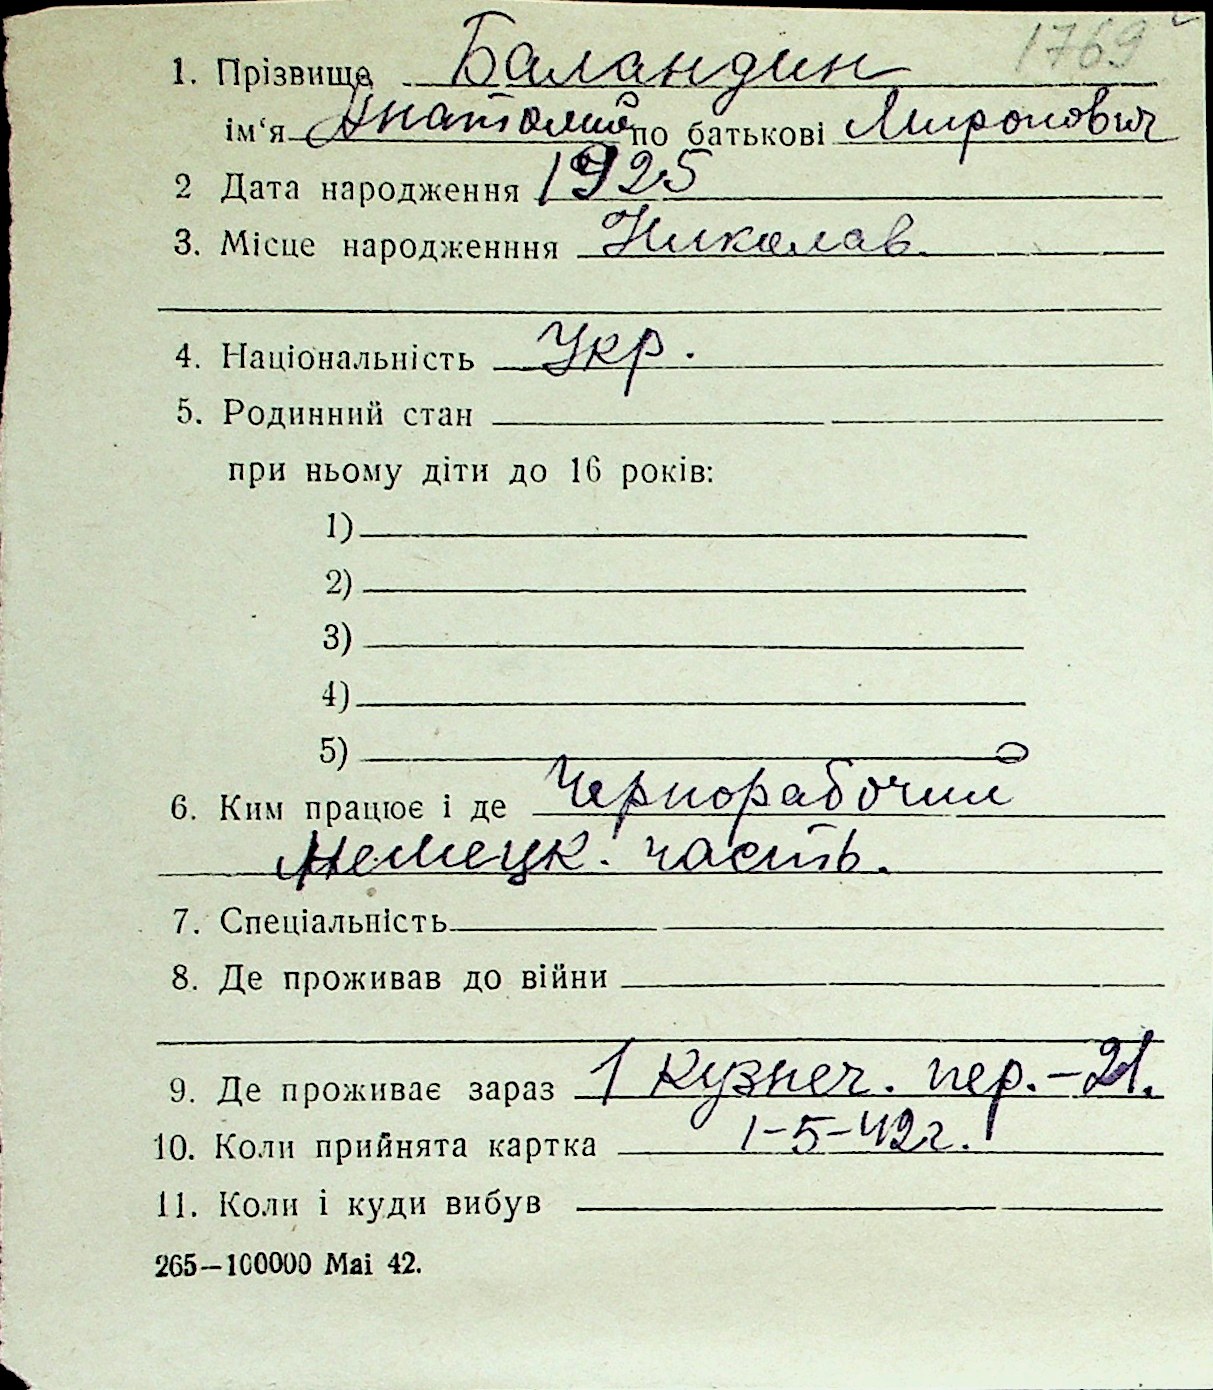 1769
1. Прізвище Баландин
ім‘я Анатолий по батькові Миронович
2 Дата народження 1925
3. Місце народженння Николав.
4. Національність Укр.
5. Родинний стан
при ньому діти до 16 років:
1)
2)
3)
4)
5)
6. Ким працює і де Чернорабочий
Немецк. часть.
7. Спеціальність
8. Де проживав до війни
9. Де проживає зараз 1 Кузнеч. пер. – 21.
10. Коли прийнята картка 1-5-42г.
11. Коли і куди вибув
265—100000 Mai 42.